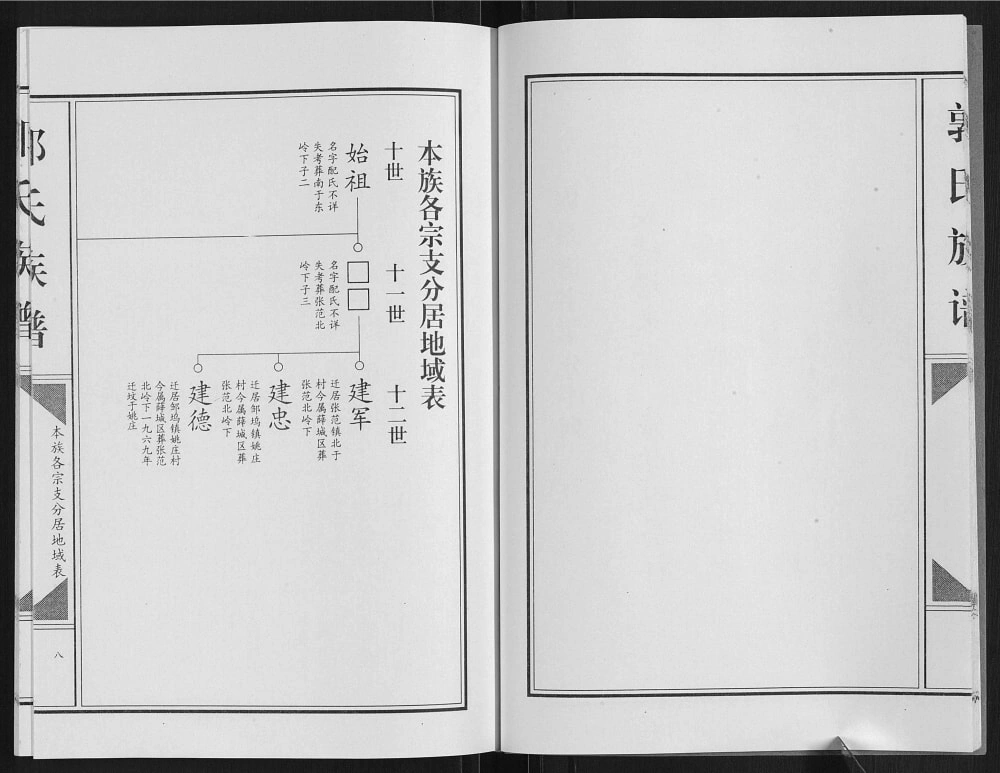 郭氏族谱
本族各宗支分居地域表
十世
始祖
名字配氏不详
失考葬南于东
岭下子二
十一世
□□
名字配氏不详
失考葬张范北
岭下子三
十二世
建军
迁居张范镇北于
村今属薛城区葬
张范北岭下
建忠
迁居邹坞镇姚庄
村今属薛城区葬
张范北岭下
建德
迁居邹坞镇姚庄村
今属薛城区葬张范
北岭下一九六九年
迁坟于姚庄
郭氏族谱
本族各宗支分居地域表
八